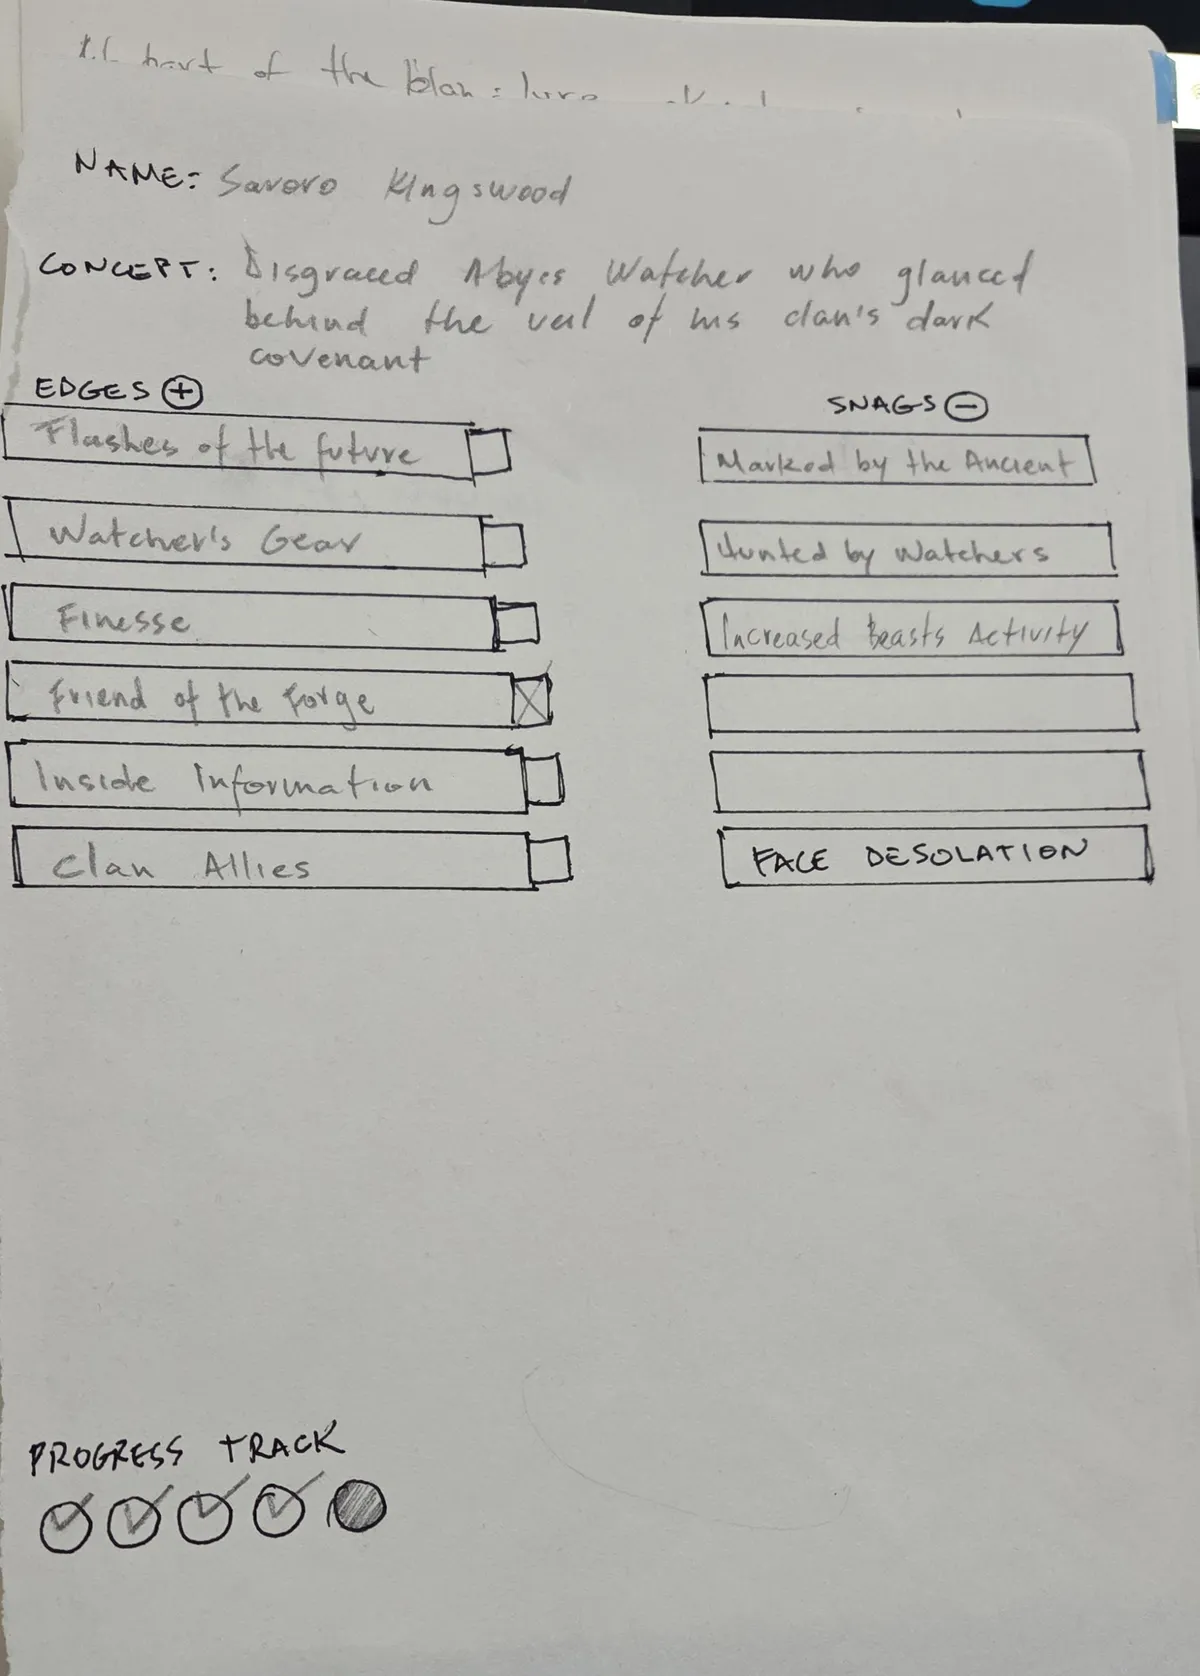 of the
NAME: Savoro Kingswood
CONCEPT: Disgraced Abyss Watcher who glanced
behind the veil of his clan's dark
covenant
EDGES +
Flashes of the future
Watcher's Gear
Finesse
Friend of the Forge
Inside Information
Clan Allies
SNAGS -
Marked by the Ancient
Hunted by Watchers
Increased Beasts Activity
FACE DESOLATION
PROGRESS TRACK